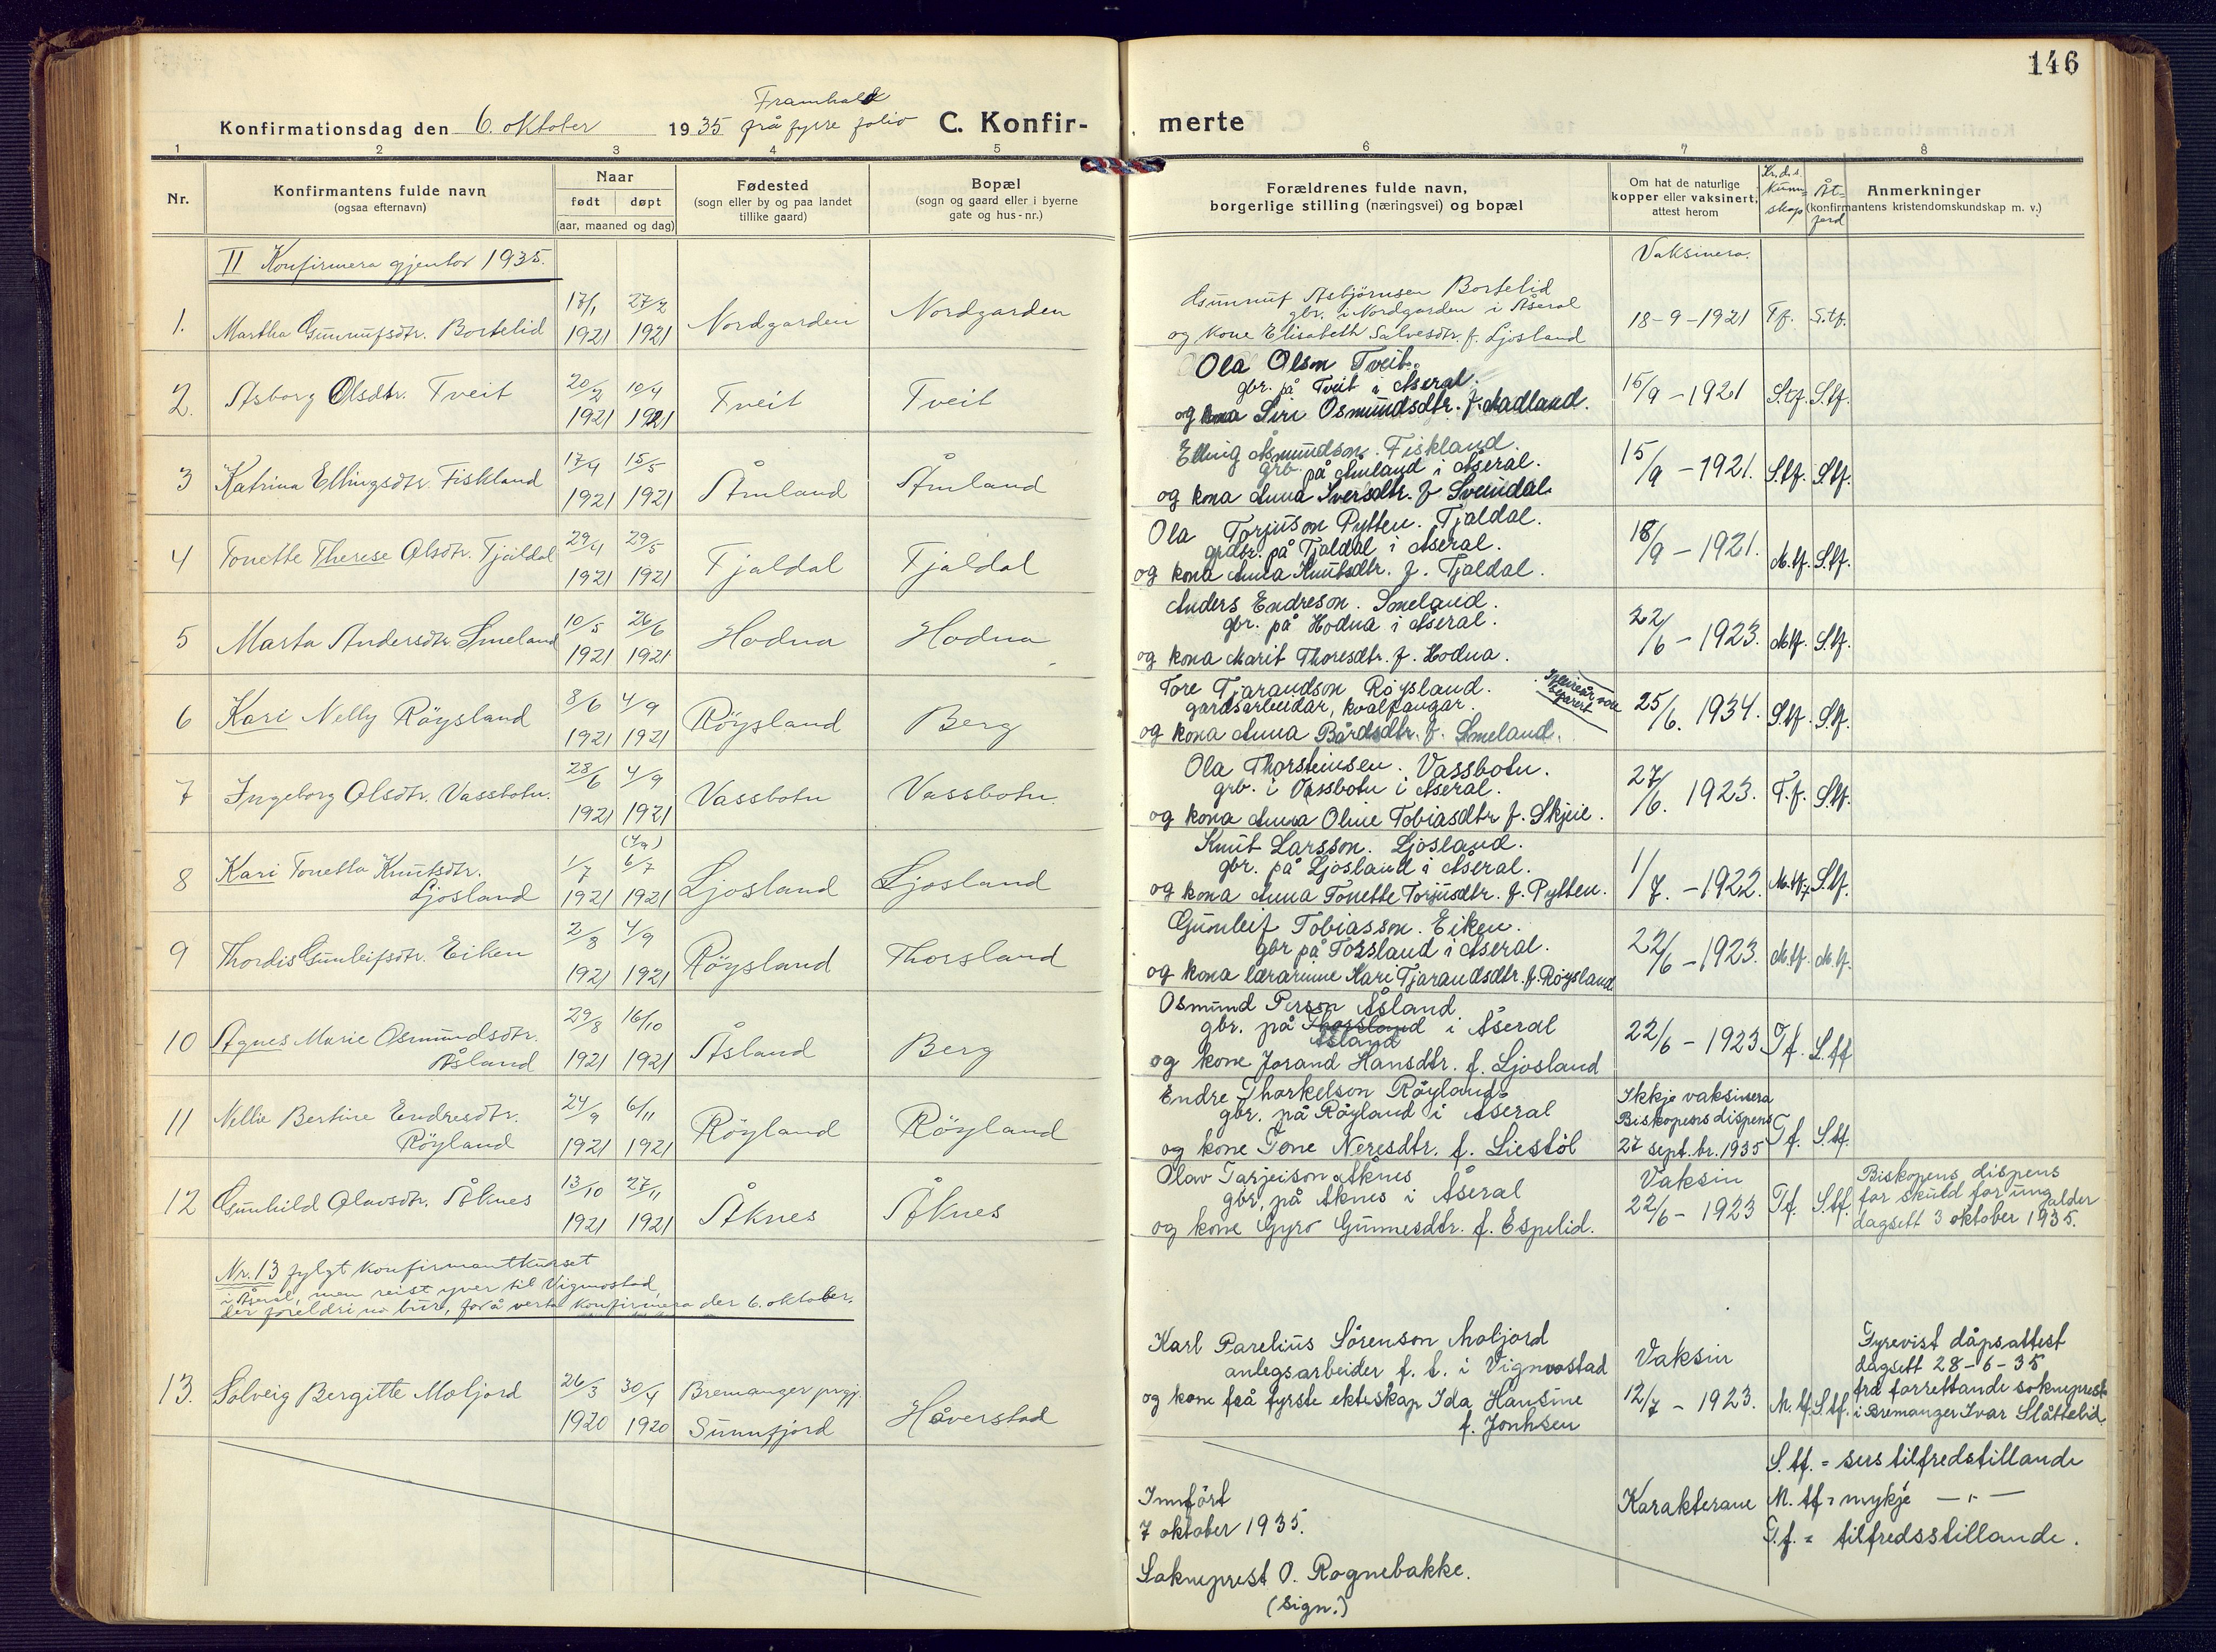 146
Framhald
Konfirmationsdag den 6. oktober 1935 frå fyrre folio C. Konfir- merte
1 2 3 4 5 6 7 8
Nr.
Konfirmantens fulde navn
(ogsaa efternavn)
Naar
født døpt
(aar, maaned og dag)
Fødested
(sogn eller by og paa landet
tillike gaard)
Bopæl
(sogn og gaard eller i byerne
gate og hus-nr.)
Forældrenes fulde navn,
borgerlige stilling (næringsvei) og bopæl
Om hat de naturlige
kopper eller vaksinert,
attest herom
Kr.d.s.
kunn-
skap
Åt-
ferd
Anmerkninger
(konfirmantens kristendomskundskap m. v.)
II Konfirmera gjentor 1935.
Vaksinera.
1. Martha Gunnufsdtr. Bortelid
17/1 1921 27/2 1921
Nordgarden Nordgarden
Gunnuf Asbjørnsen Bortelid
gbr. i Nordgarden i Åseral
og kone Elisabeth Salvesdtr. f. Ljosland
18-9-1921 T.f. S.tf.
2. Asborg Olsdtr. Tveit
20/2 1921 10/4 1921
Tveit Tveit
Ola Olson Tveit.
gbr. på Tveit i Åseral.
og kona Siri Osmundsdtr. f. Aadland.
15/9 - 1921 S.tf. S.tf.
3 Katrina Ellingsdtr. Fiskland
17/4 1921 15/5 1921
Åmland Åmland
Elling Åsmundson. Fiskland.
grb. på Åmland i Åseral.
og kona Anna Iversdtr. f. Sveindal.
15/9 - 1921. S.tf. S.tf.
4 Tonette Therese Olsdtr. Tjaldal
29/4 1921 29/5 1921
Tjaldal Tjaldal
Ola Torjuson Pytten. Tjaldal.
grdbr. på Tjaldal i Åseral.
og kona Anna Knutsdtr. f. Tjaldal.
18/9 - 1921. M.tf. S.tf.
5 Marta Andersdtr. Smeland
10/5 1921 26/6 1921
Hodna Hodna
Anders Endreson. Smeland.
gbr. på Hodna i Åseral.
og kona Marit Thoresdtr. f. Hodna.
22/6 - 1923. M.tf. S.tf.
6 Kari Nelly Röysland
8/6 1921 4/9 1921
Röysland Berg
Tore Tjarandson Röysland.
gardsarbeidar, kvalfangar.
og kona Anna Bårdsdtr. f. Smeland.
25/6. 1934. S.tf. S.tf.
7 Ingeborg Olsdtr. Vassbotn.
28/6 1921 4/9 1921
Vassbotn Vassbotn.
Ola Thorsteinsen. Vassbotn.
grb. i Vassbotn i Åseral.
og kona Anna Oline Tobiasdtr f. Skjeie.
27/6. 1923. T.f. S.tf.
8 Kari Tonetta Knutsdtr.
Ljosland
1/7 1921 (4/9) 6/7 1921
Ljosland Ljosland
Knut Larsson. Ljosland.
gbr. på Ljosland i Åseral.
og kona Anna Tonette Torjusdtr. f. Pytten.
1/7. - 1922. M.tf. S.tf.
9 Thordis Gunleifsdtr. Eiken
2/8 1921 4/9 1921
Röysland Thorsland
Gunleif Tobiasson. Eiken.
gbr på Torsland i Åseral.
og kona lærarinne Kari Tjarandsdtr. f. Röysland
22/6 - 1923. M.tf. M.tf.
10 Agnes Marie Osmundsdtr.
Åsland
29/8 1921 16/10 1921
Åsland Berg
Osmund Person Åsland
gbr. på Thorsland i Åseral
Åsland
og kone Jorand Hansdtr. f. Ljosland
22/6 - 1923 T.f. S.tf
11 Nellie Bertine Endresdtr.
Röyland
24/9 1921 6/11 1921
Röyland Röyland
Endre Thorkelson Röyland
gbr. på Röyland i Åseral
og kone Tone Neresdtr. f. Liestöl
Ikkje vaksinera
Biskopens dispens
27 sept. br. 1935 T.f. S.tf.
12 Gunhild Olavsdtr. Åknes
13/10 1921 27/11 1921
Åknes Åknes
Olav Tarjeison Åknes
gbr, på Åknes i Åseral
og kone Gyro Gunnesdtr. f. Espelid.
Vaksin
22/6 - 1923 T.f. S.tf.
Biskopens dispens
for skuld for ung alder
dagsett 3 oktober 1935.
Nr. 13 fylgt konfirmantkurset
i Åseral, men reist yver til Vigmostad,
der foreldri no bur, for å verta konfirmera der 6. oktober.
13. Solveig Bergitte Moljord
26/3 1920 30/4 1920
Bremanger prgj.
Sunnfjord
Håverstad
Karl Parelius Sörenson Moljord
anlegsarbeider f. t. i Vigmostad
og kone frå fyrste ekteskap Ida Hansine
f. Jonhsen
Vaksin
12/7 - 1923. M.tf. S.tf.
Fyrevist dåpsattest
dagsett 28-6-35
frå forrettande sokneprest
i Bremanger Ivar Slåttelid.
Innfört
7 oktober 1935.
Sokneprest O. Rognebakke.
(sign.)
Karakterane
S.tf. = sers tilfredstillande
M. tf = mykje — " —
T.f. = tilfredsstillande.